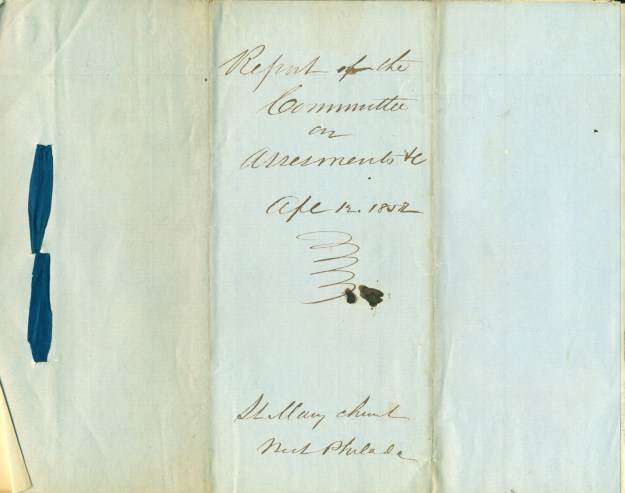 Report of the
Committee
on
Assesments &c
Apl 12. 1852
St Mary Church
West Philada